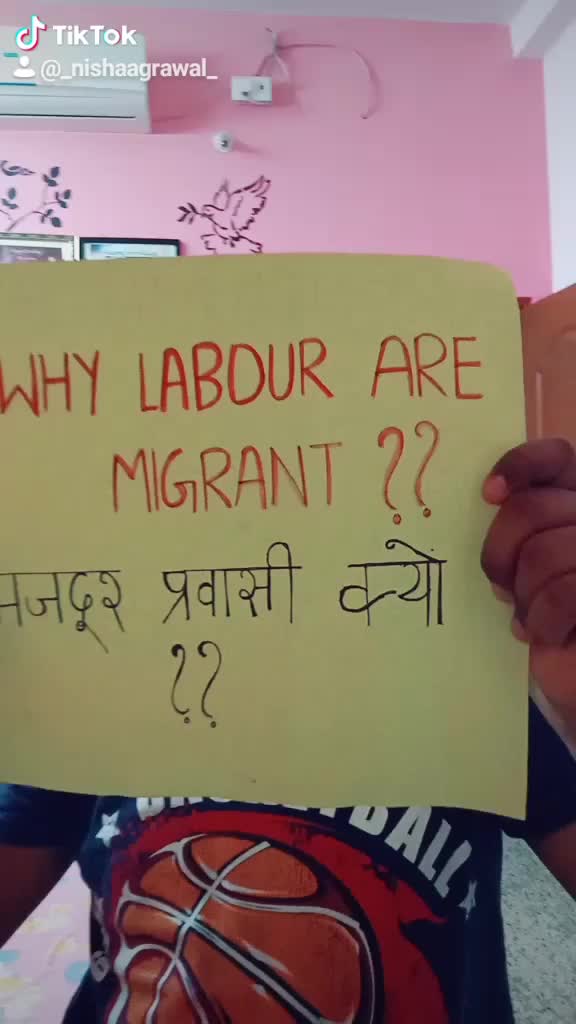 TikTok
@_nishaagrawal_
WHY LABOUR ARE
MIGRANT ??
मजदूर प्रवासी क्यों
??